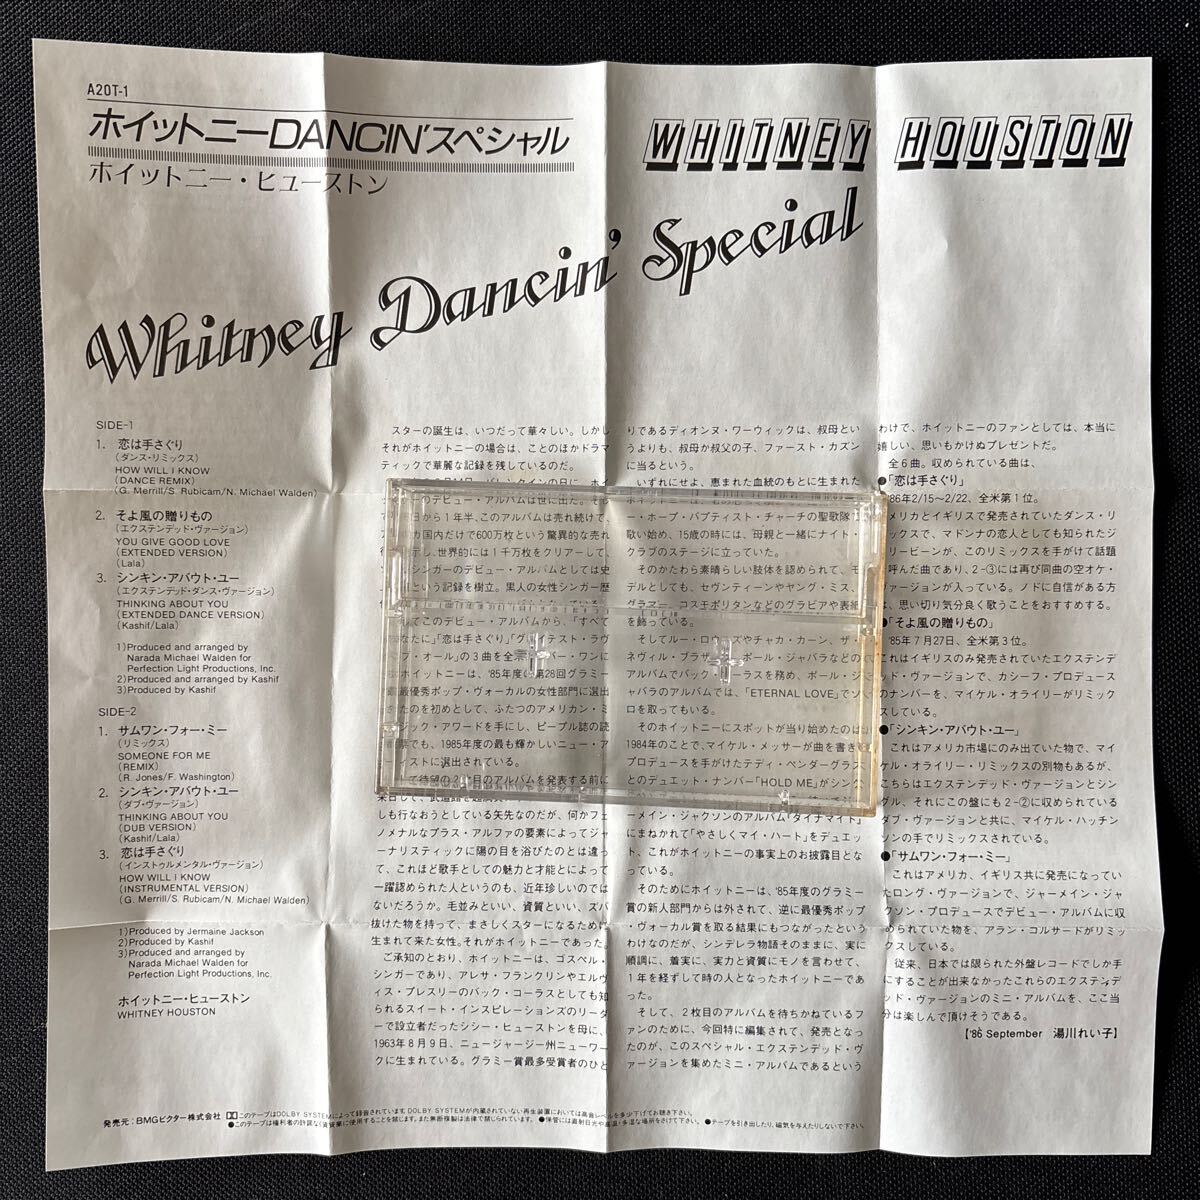 A20T-1
ホイットニーDANCIN'スペシャル
ホイットニー・ヒューストン
WHITNEY HOUSTON
Whitney Dancin' Special
SIDE-1
1. 恋は手さぐり
(ダンス・リミックス)
HOW WILL I KNOW
(DANCE REMIX)
(G. Merrill/S. Rubicam/N. Michael Walden)
2. そよ風の贈りもの
(エクステンデッド・ヴァージョン)
YOU GIVE GOOD LOVE
(EXTENDED VERSION)
(Lala)
3. シンキン・アバウト・ユー
(エクステンデッド・ダンス・ヴァージョン)
THINKING ABOUT YOU
(EXTENDED DANCE VERSION)
(Kashif/Lala)
1)Produced and arranged by
Narada Michael Walden for
Perfection Light Productions, Inc.
2)Produced and arranged by Kashif
3)Produced by Kashif
SIDE-2
1. サムワン・フォー・ミー
(リミックス)
SOMEONE FOR ME
(REMIX)
(R. Jones/F. Washington)
2. シンキン・アバウト・ユー
(ダブ・ヴァージョン)
THINKING ABOUT YOU
(DUB VERSION)
(Kashif/Lala)
3. 恋は手さぐり
(インストゥルメンタル・ヴァージョン)
HOW WILL I KNOW
(INSTRUMENTAL VERSION)
(G. Merrill/S. Rubicam/N. Michael Walden)
1)Produced by Jermaine Jackson
2)Produced by Kashif
3)Produced and arranged by
Narada Michael Walden for
Perfection Light Productions, Inc.
ホイットニー・ヒューストン
WHITNEY HOUSTON
スターの誕生は、いつだって華々しい。しかし
それがホイットニーの場合は、ことのほかドラマ
ティックで華麗な記録を残しているのだ。
のデビュー・アルバムは世に出た。そ
日から1年半、このアルバムは売れ続けて、
カ国内だけで600万枚という驚異的な売れ
示し、世界的には1千万枚をクリアーして、
シンガーのデビュー・アルバムとしては史
という記録を樹立。黒人の女性シンガー歴
このデビュー・アルバムから、「すべて
なたに」「恋は手さぐり」「グレイテスト・ラヴ
ブ・オール」の3曲を全米ナンバー・ワンに
ホイットニーは、'85年度の第28回グラミー
最優秀ポップ・ヴォーカルの女性部門に選出
たのを初めとして、ふたつのアメリカン・ミ
ジック・アワードを手にし、ピープル誌の読
でも、1985年度の最も輝かしいニュー・ア
ィストに選出されている。
て待望の2枚目のアルバムを発表する前に
しも行なおうとしている矢先なのだが、何かフェ
ノメナルなプラス・アルファの要素によってジャ
ーナリスティックに陽の目を浴びたのとは違っ
て、これほど歌手としての魅力と才能とによって
一躍認められた人というのも、近年珍しいのでは
ないだろうか。毛並みといい、資質といい、ズバ
抜けた物を持って、まさしくスターになるために
生まれて来た女性。それがホイットニーであった。
ご承知のとおり、ホイットニーは、ゴスペル・
シンガーであり、アレサ・フランクリンやエルヴ
ィス・プレスリーのバック・コーラスとしても知
られるスイート・インスピレーションズのリーダ
ーで設立者だったシシー・ヒューストンを母に、
1963年8月9日、ニュージャージー州ニューワー
クに生まれている。グラミー賞最多受賞者のひと
りであるディオンヌ・ワーウィックは、叔母とい
うよりも、叔母か叔父の子、ファースト・カズン
に当るという。
いずれにせよ、恵まれた血統のもとに生まれた
ー・ホープ・バプティスト・チャーチの聖歌隊
歌い始め、15歳の時には、母親と一緒にナイト・
クラブのステージに立っていた。
そのかたわら素晴らしい肢体を認められて、モ
デルとしても、セヴンティーンやヤング・ミス、
グラマー、コスモポリタンなどのグラビアや表紙
を飾っている。
そしてルー・ロウルズやチャカ・カーン、ザ・
ネヴィル・ブラザーズ、ポール・ジャバラなどの
アルバムでバック・コーラスを務め、ポール・ジ
ャバラのアルバムでは、「ETERNAL LOVE」でソ
ロを取ってもいる。
そのホイットニーにスポットが当り始めたのは
1984年のことで、マイケル・メッサーが曲を書き
プロデュースを手がけたテディ・ペンダーグラス
とのデュエット・ナンバー「HOLD ME」がシン
ーメイン・ジャクソンのアルバム「ダイナマイト」
にまねかれて「やさしくマイ・ハート」をデュエッ
ト、これがホイットニーの事実上のお披露目とな
っている。
そのためにホイットニーは、'85年度のグラミー
賞の新人部門からは外されて、逆に最優秀ポップ
・ヴォーカル賞を取る結果にもつながったという
わけなのだが、シンデレラ物語そのままに、実に
順調に、着実に、実力と資質にモノを言わせて、
1年を経ずして時の人となったホイットニーであ
った。
そして、2枚目のアルバムを待ちかねているフ
ァンのために、今回特に編集されて、発売となっ
たのが、このスペシャル・エクステンデッド・ヴ
ァージョンを集めたミニ・アルバムであるという
わけで、ホイットニーのファンとしては、本当に
嬉しい、思いもかけぬプレゼントだ。
全6曲。収められている曲は、
●「恋は手さぐり」
'86年2/15〜2/22、全米第1位。
アメリカとイギリスで発売されていたダンス・リ
ミックスで、マドンナの恋人としても知られたジ
ェリービーンが、このリミックスを手がけて話題
を呼んだ曲であり、2-③には再び同曲の空オケ・
ヴァージョンが入っている。ノドに自信がある方
は、思い切り気分良く歌うことをおすすめする。
●「そよ風の贈りもの」
'85年7月27日、全米第3位。
これはイギリスのみ発売されていたエクステンデ
ッド・ヴァージョンで、カシーフ・プロデュース
のナンバーを、マイケル・オライリーがリミック
スしている。
●「シンキン・アバウト・ユー」
これはアメリカ市場にのみ出ていた物で、マイ
ケル・オライリー・リミックスの別物もあるが、
こちらはエクステンデッド・ヴァージョンとシン
グル、それにこの盤にも2-②に収められている
ダブ・ヴァージョンと共に、マイケル・ハッチン
ソンの手でリミックスされている。
●「サムワン・フォー・ミー」
これはアメリカ、イギリス共に発売になってい
たロング・ヴァージョンで、ジャーメイン・ジャ
クソン・プロデュースでデビュー・アルバムに収
められていた物を、アラン・コルサードがリミッ
クスしている。
従来、日本では限られた外盤レコードでしか手
にすることが出来なかったこれらのエクステンデ
ッド・ヴァージョンのミニ・アルバムを、ここ当
分は楽しんで頂けそうである。
【'86 September 湯川れい子】
発売元：BMGビクター株式会社 このテープはDOLBY SYSTEMによって録音されています。DOLBY SYSTEMが内蔵されていない再生装置においては高音レベルを多少下げてお聴き下さい。
●このテープは権利者の許諾なく賃貸業に使用することを禁じます。また無断複製は法律で禁じられています。 ●保管には直射日光や高温・多湿な場所をさけて下さい。 ●テープを引き出したり、磁気を与えたりしないで下さい。